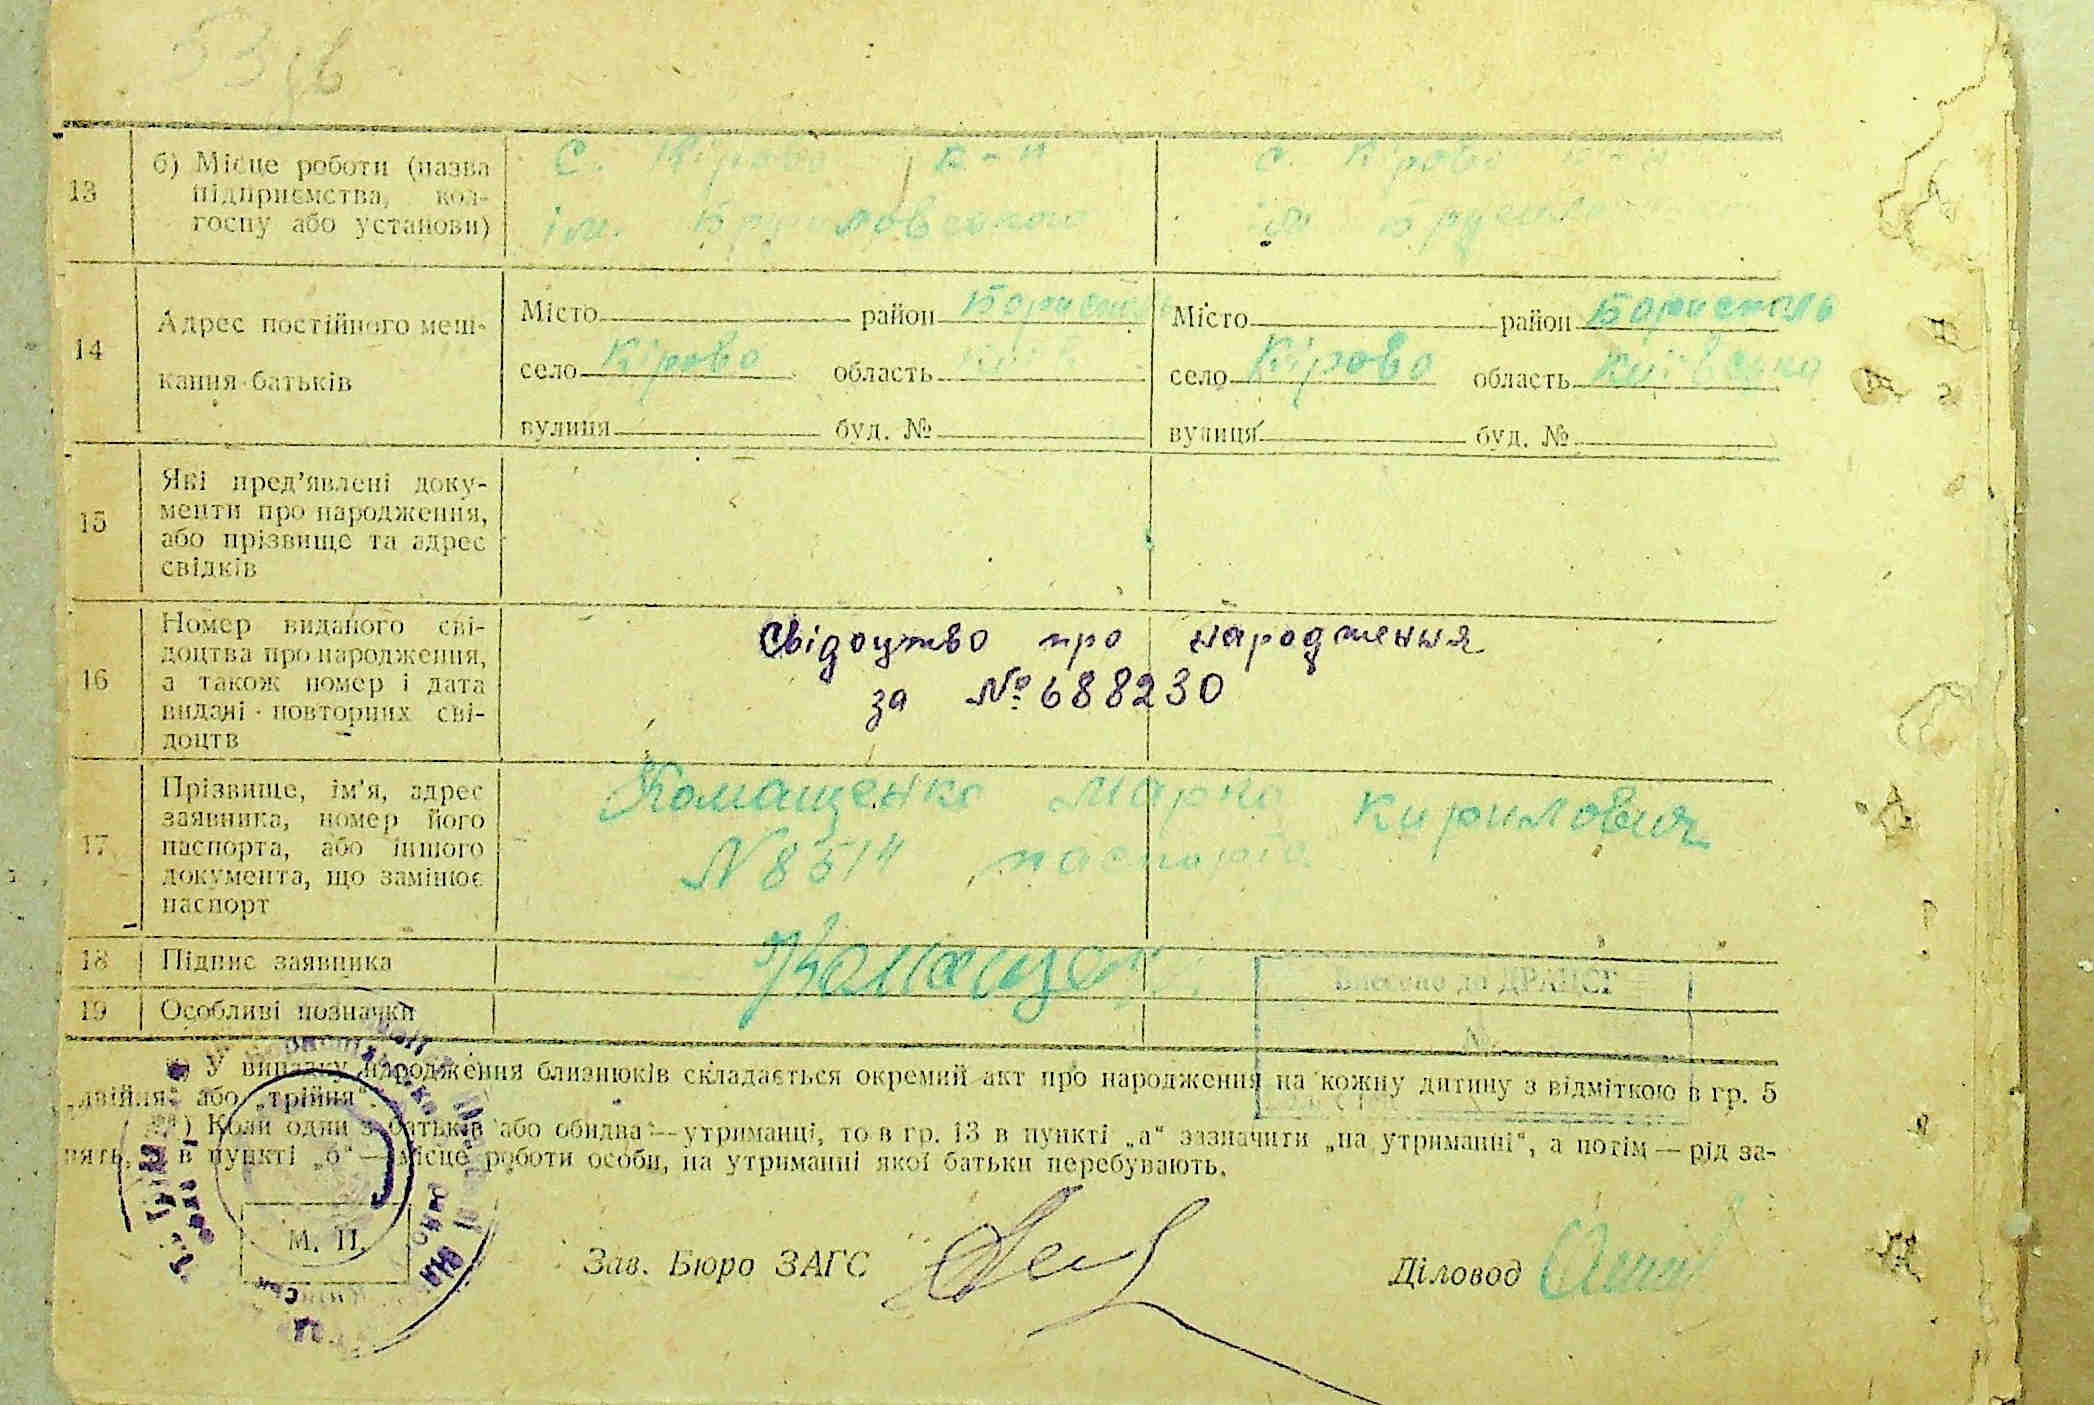 13
б) Місце роботи (назва
підприємства, кол-
госпу або установи)
с. Кірово к-п
ім.
с. Кірово к-п
ім
14
Адрес постійного меш-
кання батьків
Місто район Бориспіль
село Кірово область Київ
вулиця буд. №
Місто район Бориспіль
село Кірово область Київська
вулиця буд. №
15
Які пред'явлені доку-
менти про народження,
або прізвище та адрес
свідків
16
Номер виданого сві-
доцтва про народження,
а також номер і дата
видачі повторних сві-
доцтв
Свідоцтво про народження
за № 688230
17
Прізвище, ім'я, адрес
заявника, номер його
паспорта, або іншого
документа, що замінює
паспорт
Комащенко Марко Кирилович
N 8514 паспорта
18
Підпис заявника
19
Особливі позначки
Внесено до ДРАЦСГ
№
*) У випадку народження близнюків складається окремий акт про народження на кожну дитину з відміткою в гр. 5
„двійня“ або „трійня“.
**) Коли один з батьків або обидва—утриманці, то в гр. 13 в пункті „а“ зазначити „на утриманні“, а потім — рід за-
нять, а в пункті „б“ — місце роботи особи, на утриманні якої батьки перебувають.
М. П.
Зав. Бюро ЗАГС
Діловод